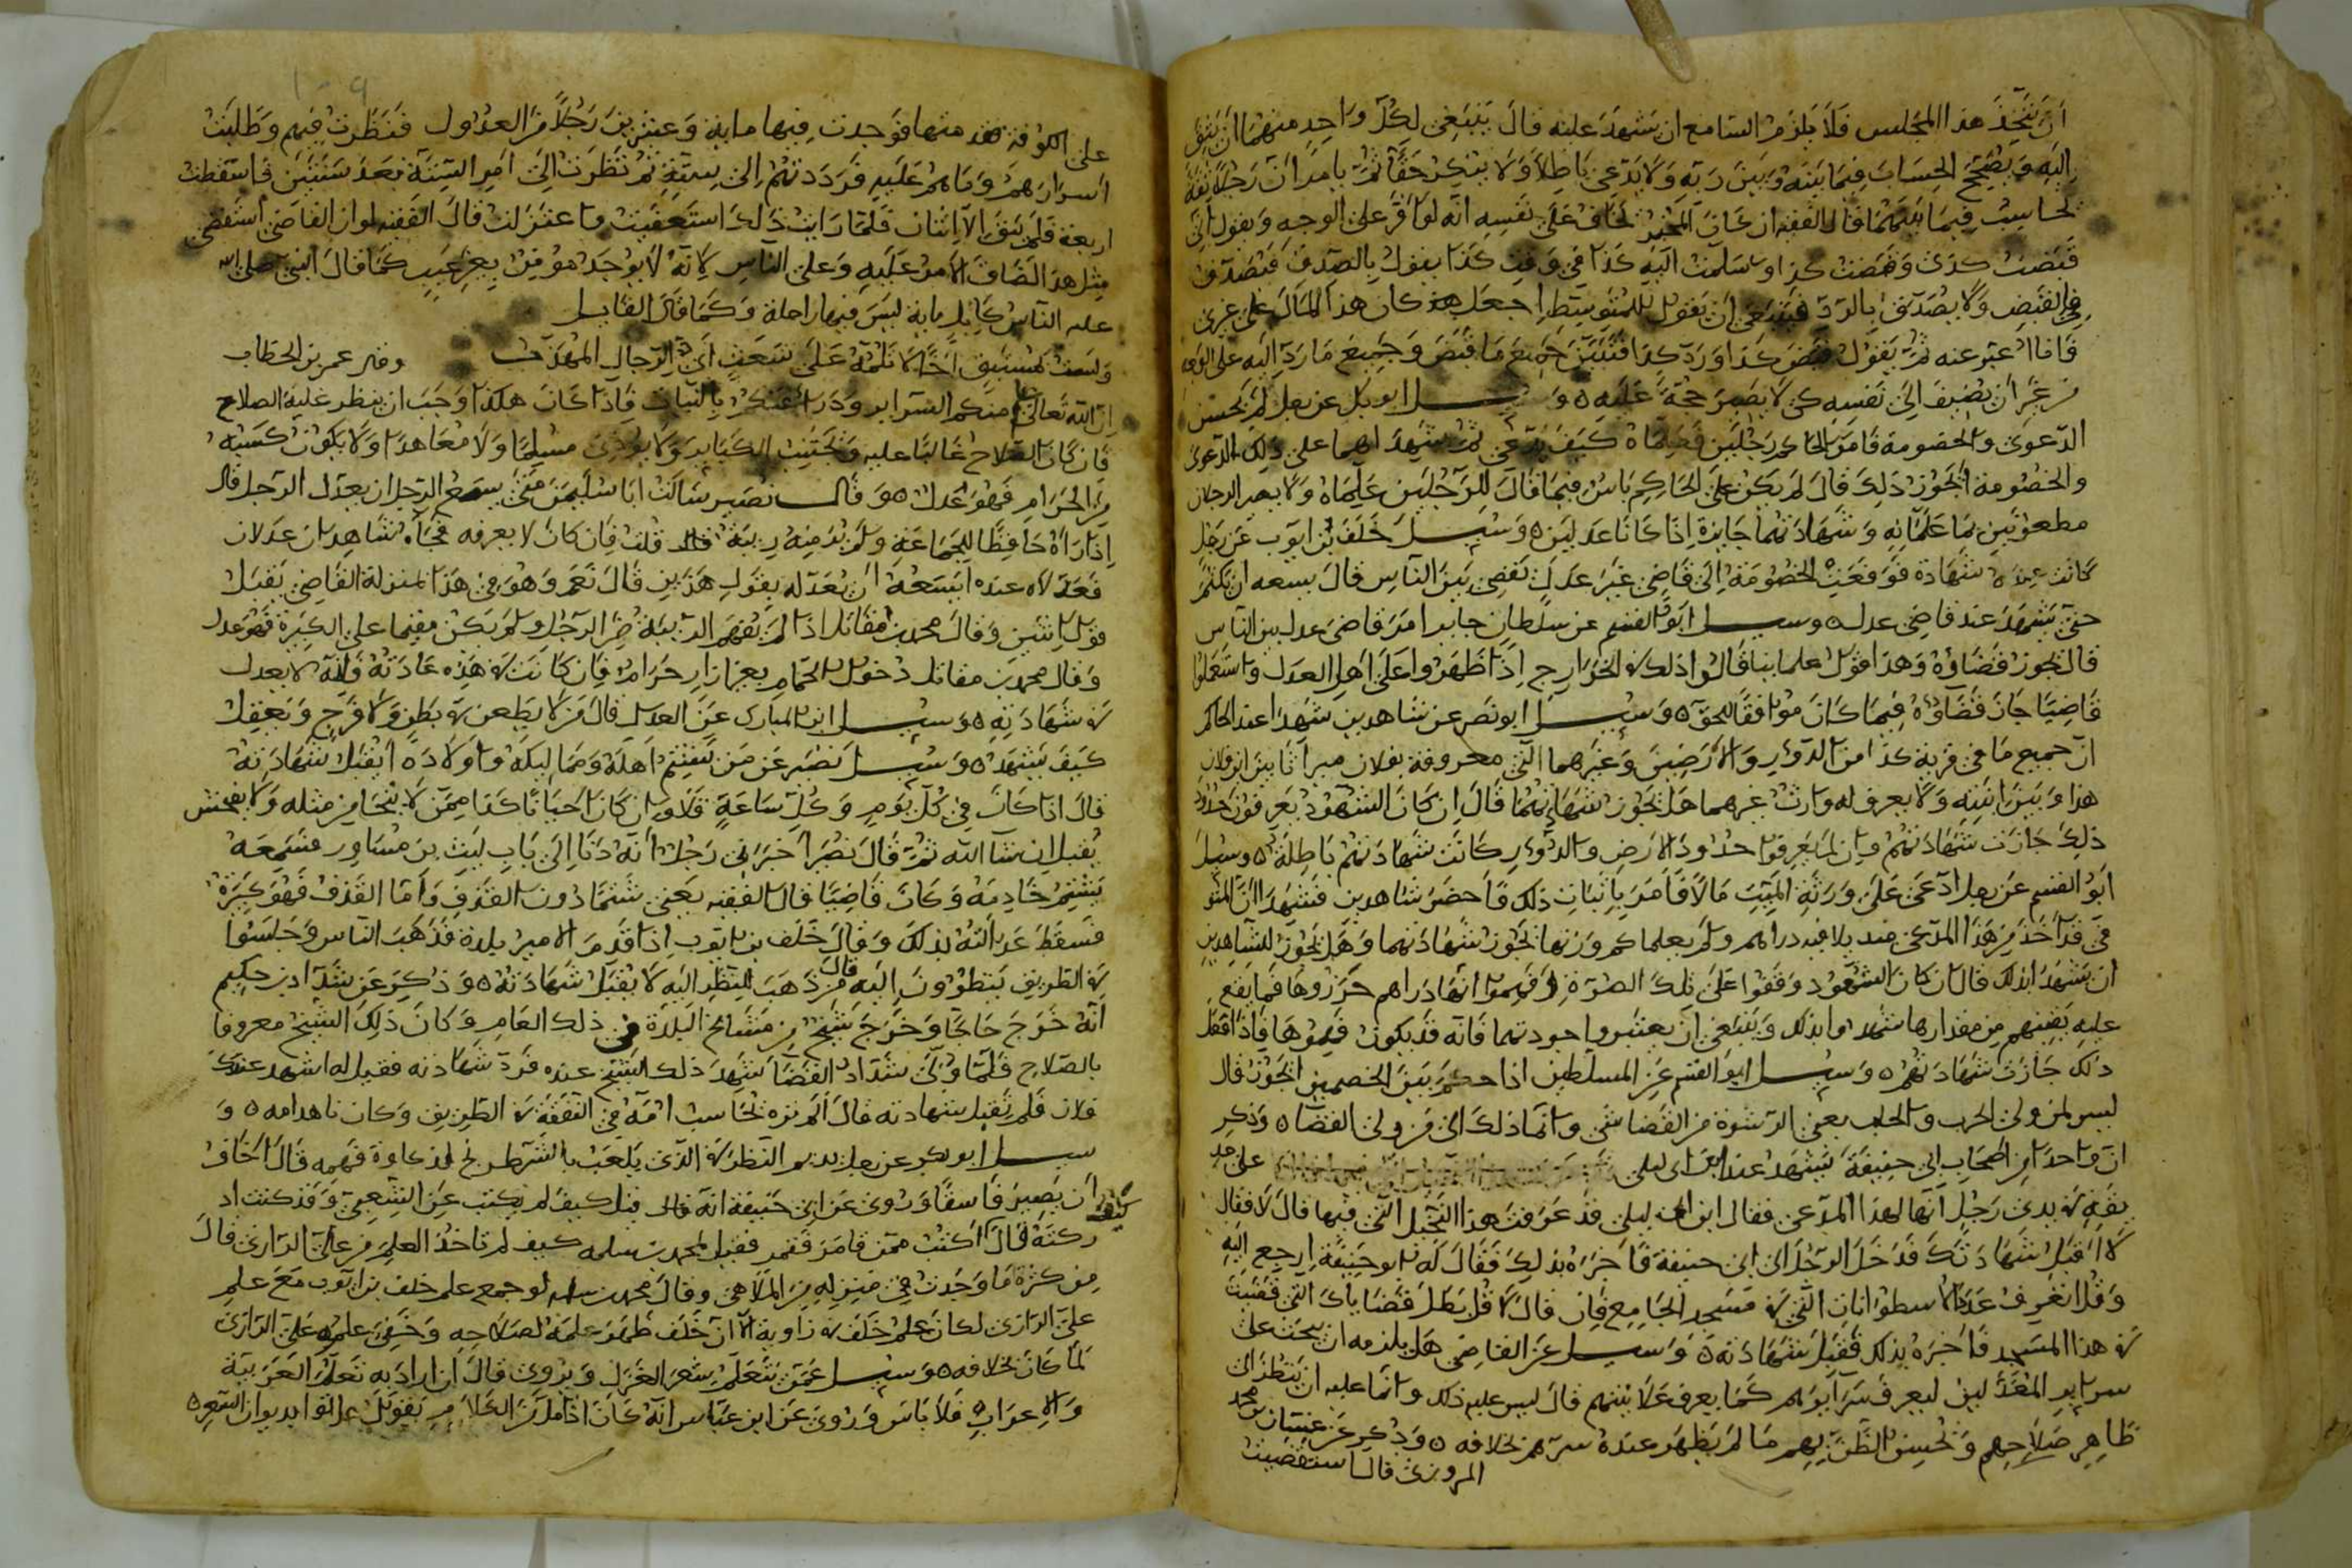 ان يتخذ هذا المجلس فلا يلزم السامع ان يشهد عليه قال ينبغي لكل واحد منهما ان يتق
اليه ويصحح الحساب فيما بينه وبين ربه ولا يدعي باطلا ولا ينكر حقا ثم يامران رجلا ثقة
يحاسب فيما بينهما قال الفقيه ان كان يخاف على نفسه انه لو اقر على الوجه ويقول اني
قبضت كذى وقبضت كذا وسلمت اليه كذا في وقت كذا يقول بالصدق فيصدق
في القبض ولا يصدق بالرد فينبغي ان يقول للمتوسط اجعل كان هذا المال على غيري
فاذا عبر عنه ثم يقول قبض كذا ورد كذا فتبين جميع ما قبض وجميع ما رد اليه على
من غير ان يضيف الى نفسه كي لا يصير حجة عليه ٥ وسئل ابو بكر عن رجل لم يحسن
الدعوى والخصومة فامر الحاكم رجلين فعلماه كيف يدعي ثم شهدا هما على ذلك الدعوى
والخصومة ايجوز ذلك قال لم يكن على الحاكم باس فيما قال للرجلين علماه ولا يصير الرجلان
مطعونين بما علمانه وشهادتهما جايزة اذا كانا عدلين ٥ وسئل خلف بن ايوب عن رجل
كانت عنده شهادة فوقعت الخصومة الى قاضي غير عدل يقضي بين الناس قال يسعه ان يكتم
حتى يشهد عند قاضي عدل ٥ وسئل ابو القسم عن سلطان جاير امر قاضي عدل بين الناس
قال يجوز قضاؤه وهذا قول علماينا قالوا ذلك في الخوارج اذا ظهروا على اهل العدل واستعملوا
قاضيا جاز قضاؤه فيما كان موافقا للحق ٥ وسئل ابو نصر عن شاهدين شهدا عند الحاكم
ان جميع ما في قرية كذا من الدور والارضين وغيرهما التي معروفة بفلان ميراثا بين ابن فلان
هذا وبين ابنته ولا يعرف له وارث غيرهما هل يجوز شهادتهما قال ان كان الشهود يعرفون حدود
ذلك جازت شهادتهم وان لم يعرفوا حدود الارض والدور كانت شهادتهم باطلة ٥ وسئل
ابو القسم عن رجل ادعى على ورثة الميت مالا فامر باثبات ذلك فاحضر شاهدين فشهدا ان المتو
في قد اخذ من هذا المدعي منديلا فيه دراهم ولم يعلما كم وزنها يجوز شهادتهما وهل يجوز للشاهدين
ان يشهدا بذلك قال ان كان الشهود وقفوا على تلك الصرة وفهموا انها دراهم حزروها فما يقع
عليه يقينهم من مقدارها شهدوا بذلك وينبغي ان يعتبروا جودتهما فانه قد يكون فاذا فعل
ذلك جازت شهادتهم ٥ وسئل ابو القسم عن المسلطين اذا حكم بين الخصمين ايجوز قال
ليس لمن ولي الحرب والجلب يعني الرشوة من القضا شي وانما ذلك الى من ولي القضا ٥ وذكر
ان واحدا من اصحاب ابي حنيفة شهد عند ابن ابي ليلى على
في يدي رجل انها لهذا المدعي فقال ابن ابي ليلى قد عرفت هذا النخيل التي فيها قال لا فقال
لا اقبل شهادتك فدخل الرجل الى ابي حنيفة فاخبره بذلك فقال له ابو حنيفة ارجع اليه
وقل اتعرف عدد الاسطوانات التي في مسجد الجامع فان قال لا قل بطل قضاياك التي قضيت
في هذا المسجد فاخبره بذلك فقبل شهادته ٥ وسئل عن القاضي هل يلزمه ان يبحث على
سراير المعدلين ليعرف سرايرهم كما يعرف علانيتهم قال ليس عليه ذلك وانما عليه ان ينظر الى
ظاهر صلاحهم ويحسن الظن بهم ما لم يظهر عنده سرهم خلافه ٥ وذكر عن محمد
المروزي قال استقضيت
على الكوفة فوجدت فيها ماية وعشرين رجلا من العدول فنظرت فيهم وطلبت
اسرارهم وما هم عليه فرددتهم الى ستة ثم نظرت الى امر الستة بعد سنتين فاسقطت
اربعة فلم يبق الا اثنان فلما رايت ذلك استعفيت واعتزلت قال الفقيه لو ان القاضي استقصى
مثل هذا لضاق الامر عليه وعلى الناس لانه لا يوجد مومن بغير عيب كما قال النبي صلى الله
عليه الناس كابل ماية ليس فيها راحلة وكما قال القايل
ولست بمستبق اخا لا تلمه على شعث اي الرجال المهذب وعن عمر بن الخطاب
ان الله تعالى منكم السراير ودرا عنكم بالبينات فاذا كان هكذا وجب ان ينظر عليه الصلاح
فان كان الصلاح غالبا عليه ويجتنب الكباير ولا يوذي مسلما ولا معاهدا ولا يكون كسبه
من الحرام فهو عدل ٥ وقال نصير سالت ابا سليمن متى يسع الرجل ان يعدل الرجل قال
اذا راه حافظا للجماعة ولم يبد منه ريبة قال قلت فان كان لا يعرفه فجاء شاهدان عدلان
فعدلاه عنده ايسعه ان يعدله بقول هذين قال نعم وهو في هذا بمنزلة القاضي يقبل
قول اثنين وقال محمد بن مقاتل اذا لم يفهم الريبة من الرجل ولم يكن مقيما على الكبيرة فهو عدل
وقال محمد بن مقاتل دخول الحمام بغير ازار حرام فان كانت له هذه عادته فانه لا يعدل
في شهادته ٥ وسئل ابن المبارك عن العدل قال من لا يطعن في بطن ولا فرج ويعقل
كيف يشهد ٥ وسئل نصير عن من يشتم اهله ومماليكه واولاده ايقبل شهادته
قال اذا كان في كل يوم وكل ساعة فلا وان كان احيانا كذا ممن لا ينجا من مثله ولا يفحش
يقبل ان شا الله ثم قال نصير اخبرني رجل انه دنا الى باب ليث بن مساور فسمعه
يشتم خادمه وكان قاضيا قال الفقيه يعني شتما دون القذف واما القذف فهو كبيرة
فسقط عدالته بذلك وقال خلف بن ايوب اذا قدم الامير بلدة فذهب الناس وجلسوا
في الطريق ينظرون اليه قال من ذهب للنظر اليه لا يقبل شهادته ٥ وذكر عن شداد بن حكيم
انه خرج حاجا وخرج شيخ من مشايخ البلدة في ذلك العام وكان ذلك الشيخ معروفا
بالصلاح فلما ولى شداد القضا شهد ذلك الشيخ عنده فرد شهادته فقيل له اشهد عندك
فلان فلم تقبل شهادته قال الم تره يحاسب امه في النفقة في الطريق وكان ناهدامه ٥ و
سئل ابو بكر عن رجل يديم النظر في الذي يلعب بالشطرنج لذكاوة فهمه قال اخاف
ان يصير فاسقا وروى عن ابي حنيفة انه قال قيل كيف لم يكتب عن الشعبي وقد كنت اد
ركته قال اكتب عمن قامر فقمر فقيل لمحمد بن سلمه كيف لم تاخذ العلم من علي الرازي قال
من كثرة ما وجدت في منزله من الملاهي وقال محمد بن سلمه لو جمع علم خلف بن ايوب مع علم
علي الرازي لكان علم خلف في زاوية الا ان خلف ظهر علمه لصلاحه وخفي علمه على الرازي
لما كان بخلافه ٥ وسئل عمن يتعلم شعر الغزل ويروي قال ان اراد به تعلم العربية
والاعراب فلا باس وروى عن ابن عباس انه كان اذا مل من الكلام يقول هاتوا بديوان الشعر ٥